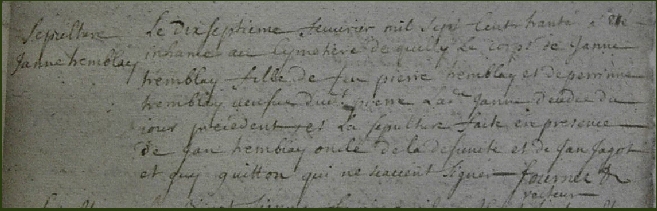 Sepulture
Janne tremblay
Le Dix Septieme fevrier mil Sept Cent trante a été
inhumé au Cymetere de quilly le corps de Janne
tremblay fille de feu pierre tremblay et de perrinne
tremblay veufue dudit pierre Ladte Janne deuedee du
jour precedent et La sepultre faite en presence
de Jan tremblay oncle de la defuncte et de Jan Jagot
et guy guitton qui ne scauent signer fournier
recteur